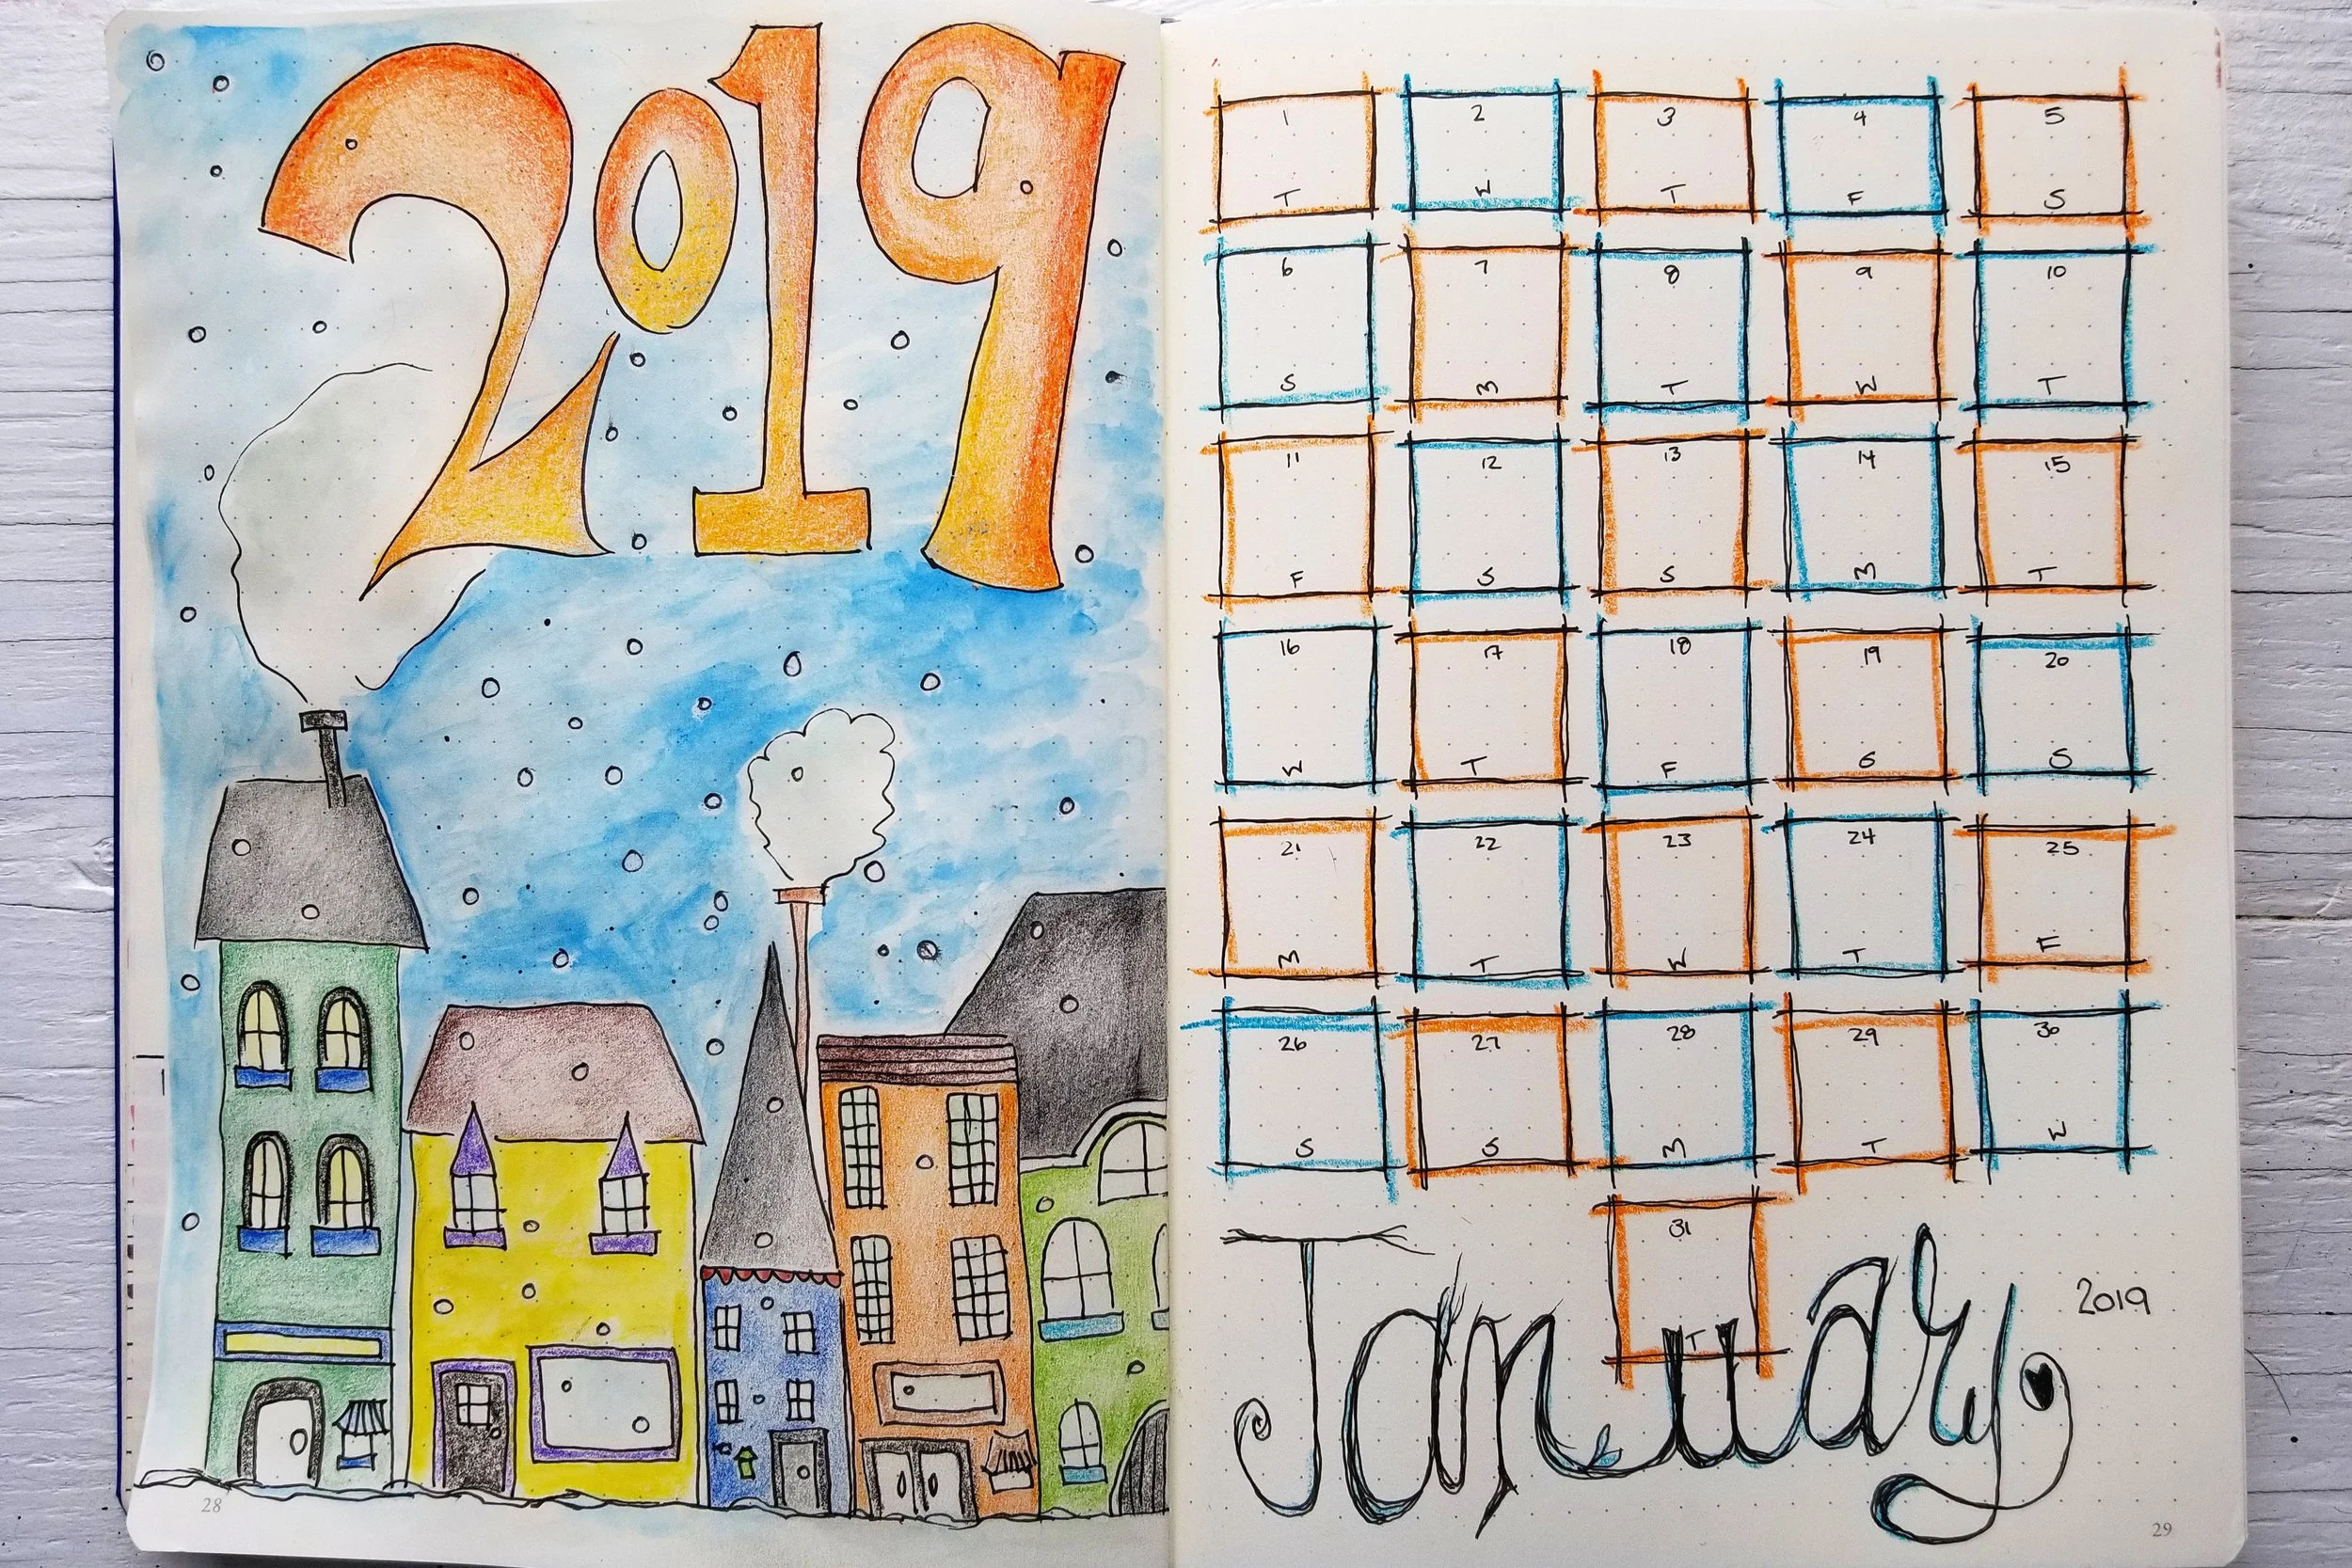 2019
28
1 2 3 4 5
T W T F S
6 7 8 9 10
S M T W T
11 12 13 14 15
F S S M T
16 17 18 19 20
W T F S S
21 22 23 24 25
M T W T F
26 27 28 29 30
S S M T W
31
T
January 2019
29